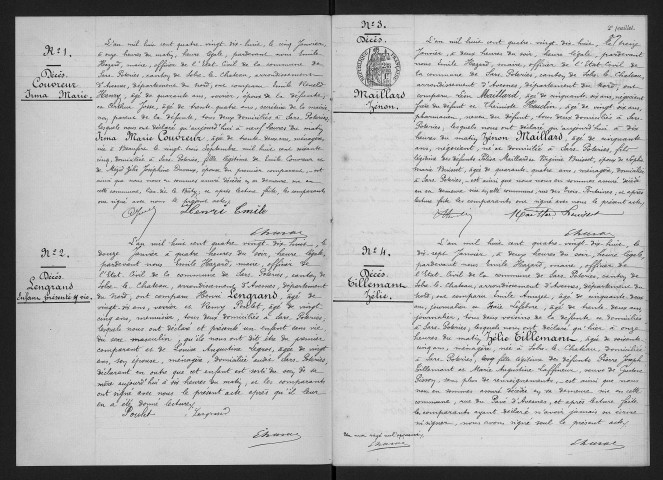 N° 1.
Décès
Couvreur
Irma Marie.
L'an mil huit cent quatre vingt-dix-huit, le cinq Janvier,
à onze heures du matin, heure légale, pardevant nous Emile
Hazard, maire, officier de l'Etat-Civil de la commune de
Sars Poteries, canton de Solre le Chateau, arrondissement
d'Avesnes, département du Nord, ont comparu Emile
Henry, âgé de quarante
et Arthur Josse, âgé de trente quatre ans, secrétaire de la mairie
tous deux domiciliés à Sars Poteries,
lesquels nous ont déclaré qu'aujourd'hui à neuf heures du matin,
Irma Marie Couvreur, âgée de trente deux ans, ménagère,
née à Beaufort le vingt trois Septembre mil huit cent soixante
cinq, domiciliée à Sars Poteries, fille légitime de Emile Couvreur et
de
ainsi que nous nous en sommes assuré, décédée en sa demeure en
cette commune, et après lecture faite, les comparants
ont signé avec nous le présent acte.
Henri Emile
N° 2.
Décès
Lengrand
Enfant présenté s. vie.
L'an mil huit cent quatre vingt-dix-huit, le
douze Janvier à quatre heures du soir, heure légale,
pardevant nous Emile Hazard, maire, officier de
l'Etat Civil de la commune de Sars Poteries, canton de
Solre le Chateau, arrondissement d'Avesnes, département
du Nord, ont comparu Henri Lengrand, âgé de
vingt six ans, verrier et Henry Poulet, âgé de vingt
cinq ans, menuisier, tous deux domiciliés à Sars Poteries,
lesquels nous ont déclaré et présenté un enfant sans vie
du sexe masculin, qu'ils nous ont dit être du premier
comparant et de Laure Augustine Légat, âgée de vingt
ans, son épouse, ménagère, domiciliée audit Sars Poteries,
déclarant en outre que cet enfant est sorti du sein de sa
mère aujourd'hui à dix heures du matin, et les comparants
ont signé avec nous le présent acte après qu'il leur
en a été donné lecture.
Poulet Lengrand
N° 3.
2e feuillet.
Décès
Maillard
Zénon.
L'an mil huit cent quatre vingt-dix-huit, le treize
Janvier, à deux heures du soir, heure légale, pardevant
nous Emile Hazard, maire, officier de l'Etat Civil de
la commune de Sars Poteries, canton de Solre le Chateau,
arrondissement d'Avesnes, département du Nord, ont
comparu Léon Maillard, âgé de cinquante six ans, négociant,
frère du défunt et Théniste Houdin, âgé de vingt six ans,
pharmacien, neveu du défunt, tous deux domiciliés à Sars
Poteries, lesquels nous ont déclaré qu'aujourd'hui à dix
heures du matin, Zénon Maillard, âgé de cinquante
ans, négociant, né et domicilié à Sars Poteries, fils
légitime des défunts Félix Maillard et Virginie Buisset, époux de
Marie Buisset, âgée de quarante quatre ans, ménagère, domiciliée
à Sars Poteries, est ainsi que nous nous en sommes assuré décédé
en sa demeure sise en cette commune, rue des Trois Fontaines, et après
lecture faite les comparants ont signé avec nous le présent acte.
N° 4.
Décès
Tillemant
Zélie.
L'an mil huit cent quatre vingt-dix-huit, le
dix-sept Janvier, à deux heures du soir, heure légale,
pardevant nous Emile Hazard, maire, officier de
l'Etat Civil de la commune de Sars Poteries, canton de
Solre le Chateau, arrondissement d'Avesnes, département du
Nord, ont comparu Emile Anuize, âgé de cinquante deux
ans, journalier et Haie Lefebvre, âgé de trente deux ans,
journalier, tous deux voisins de la défunte et domiciliés
à Sars Poteries, lesquels nous ont déclaré qu'hier à onze
heures du matin, Zélie Tillemant, âgée de soixante
cinq ans, ménagère, née à Solre le Chateau, domiciliée
à Sars Poteries, fille légitime des défunts Pierre Joseph
Tillemant et Marie Augustine Laffineur, veuve de Gustave
Pessoy, sans plus de renseignements, est ainsi que nous
nous en sommes assuré décédée en sa demeure, sise en cette
commune, rue du Pavé d'Avesnes, et après lecture faite
les comparants ayant déclaré n'avoir jamais su écrire
ni signer, nous avons signé seul le présent acte.